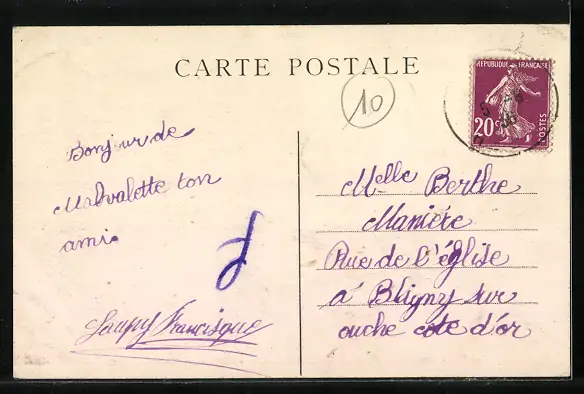 CARTE POSTALE
10
REPUBLIQUE FRANÇAISE
20
POSTES
Bonjour de
Malvalette ton
amie
Francisque
Melle Berthe
Manière
Rue de l'église
à Bligny sur
ouche cote d'or